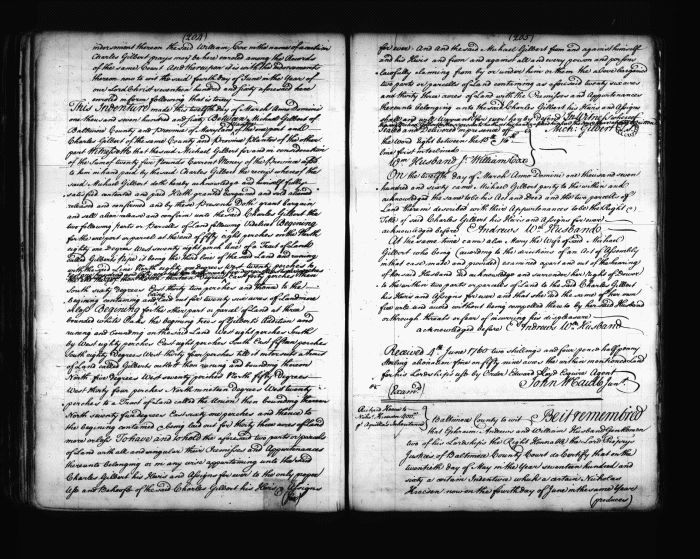 (204)
indorsment thereon the said William Cox in the name of
Charles Gilbert prays may be here enroled among the Records
of the same Court And thereupon it is with the indorsments
thereon now to wit the said fourth day of June in the Year of
our Lord Christ seventeen hundred and sixty aforesaid here
enroled in form following that is to say
This Indenture made this twelfth day of March Anno Domini
one thousand seven hundred and sixty Between Michael Gilbert of
Baltimore County and Province of Maryland of the one part and
Charles Gilbert of the same County and Province Planter of the other
part Witnesseth that the said Michael Gilbert for and in consideration
of the Sum of twenty five Pounds Current Money of the Province afsd
to him in hand paid by the said Charles Gilbert the receipt whereof the
said Michael Gilbert doth hereby acknowledge and himself fully
satisfied contented and paid Hath granted bargained and sold
released and confirmed and by these Presents Doth grant bargain
and sell alien release and confirm unto the said Charles Gilbert the
two following parts or Parcels of Land following Videlicet Begining
for the one part or parcel at the end of fifty eight perches on the North
eighty one degrees West seventy eight perch line of a Tract of Land
called Gilberts it being the third line of the said Land and runing
with the said Line North eighty one degrees West twenty perches
South sixty degrees East thirty two perches and thence to the
begining containing and laid out for twenty six acres of Land more
or less Begining for the other part or parcel of Land at three
bounded White Oaks the begining trees of Gilberts Addition and
runing and bounding on the said Land West eight perches South
by West eighty perches East eight perches South East fifteen perches
South eighty degrees West thirty four perches till it intersects a Tract
of Land called Gilberts then runing and bounding thereon
North five degrees West seventy perches North fifty degrees
West thirty four perches North nineteen degrees West twenty
perches to a Tract of Land called the Union then bounding thereon
North seventy four degrees East sixty one perches and thence to
the begining contained & being laid out for thirty three acres of Land
more or less To have and to hold the aforesaid two parts or parcels
of Land with all and singular their Premisses and Appurtenances
thereunto belonging or in any wise appertaining unto the said
Charles Gilbert his Heirs and Assigns for ever to the only proper
Use and Behoofe of the said Charles Gilbert his Heirs & Assigns
(for)
(205)
for ever And the said Michael Gilbert from and against himself
and his Heirs and from and against all and every person and persons
lawfully claiming from by or under him or them the above bargained
two parts or parcels of Land containing as aforesaid twenty six acres
and thirty three acres of Land with the Premisses and Appurtenances
thereunto belonging unto the said Charles Gilbert his Heirs and Assigns
shall and will Warrant and for ever by these Presents Defend In Witness
Sealed and Delivered in presence of
Mich: Gilbert (Seal)
the word Eight between the 15 & 16
line first interlined
Wm Husband Jr William Cox
On the twelfth Day of March Anno Domini one thousand seven
hundred and sixty came Michael Gilbert party to the within and
acknowledged the same to be his Act and Deed and the two parcels of
Land therein described with their Appurtenances to be the Right &
Title of said Charles Gilbert his Heirs and Assigns for ever
acknowledged before Andrews Wm Husband
At the same time came also Mary the Wife of said Michael
Gilbert who being (according to the directions of an Act of Assembly
in that case made and provided) examined apart and out of the hearing
of her said Husband did acknowledge and surrender her right of Dower
to the within two parts or parcels of Land to the said Charles Gilbert
his Heirs and Assigns for ever and that she did the same of her own
free will and accord without being compelled thereto by her said Husband
or through threats or fear of incurring his displeasure
acknowledged before Andrews Wm Husband
Received 4th June 1760 two shillings and four pence half penny
Sterling alienation fine on fifty nine acres the within mentioned
for his Lordships use by Order Edward Loyd Esquire Agent
John McCubbin Junr.
Exam'd
Richard
to Nichs.
of Apurtenances
Baltimore County to wit Be it remembred
that Ephraim Andrews and William Husband Gentlemen
two of his Lordships the Right Honourable the Lord Propry's
Justices of Baltimore County Court do Certify that on the
twentieth day of May in the Year seventeen hundred and
sixty a certain Indenture which a certain Nicholas
now on the fourth day of June in the same Year
(produces)